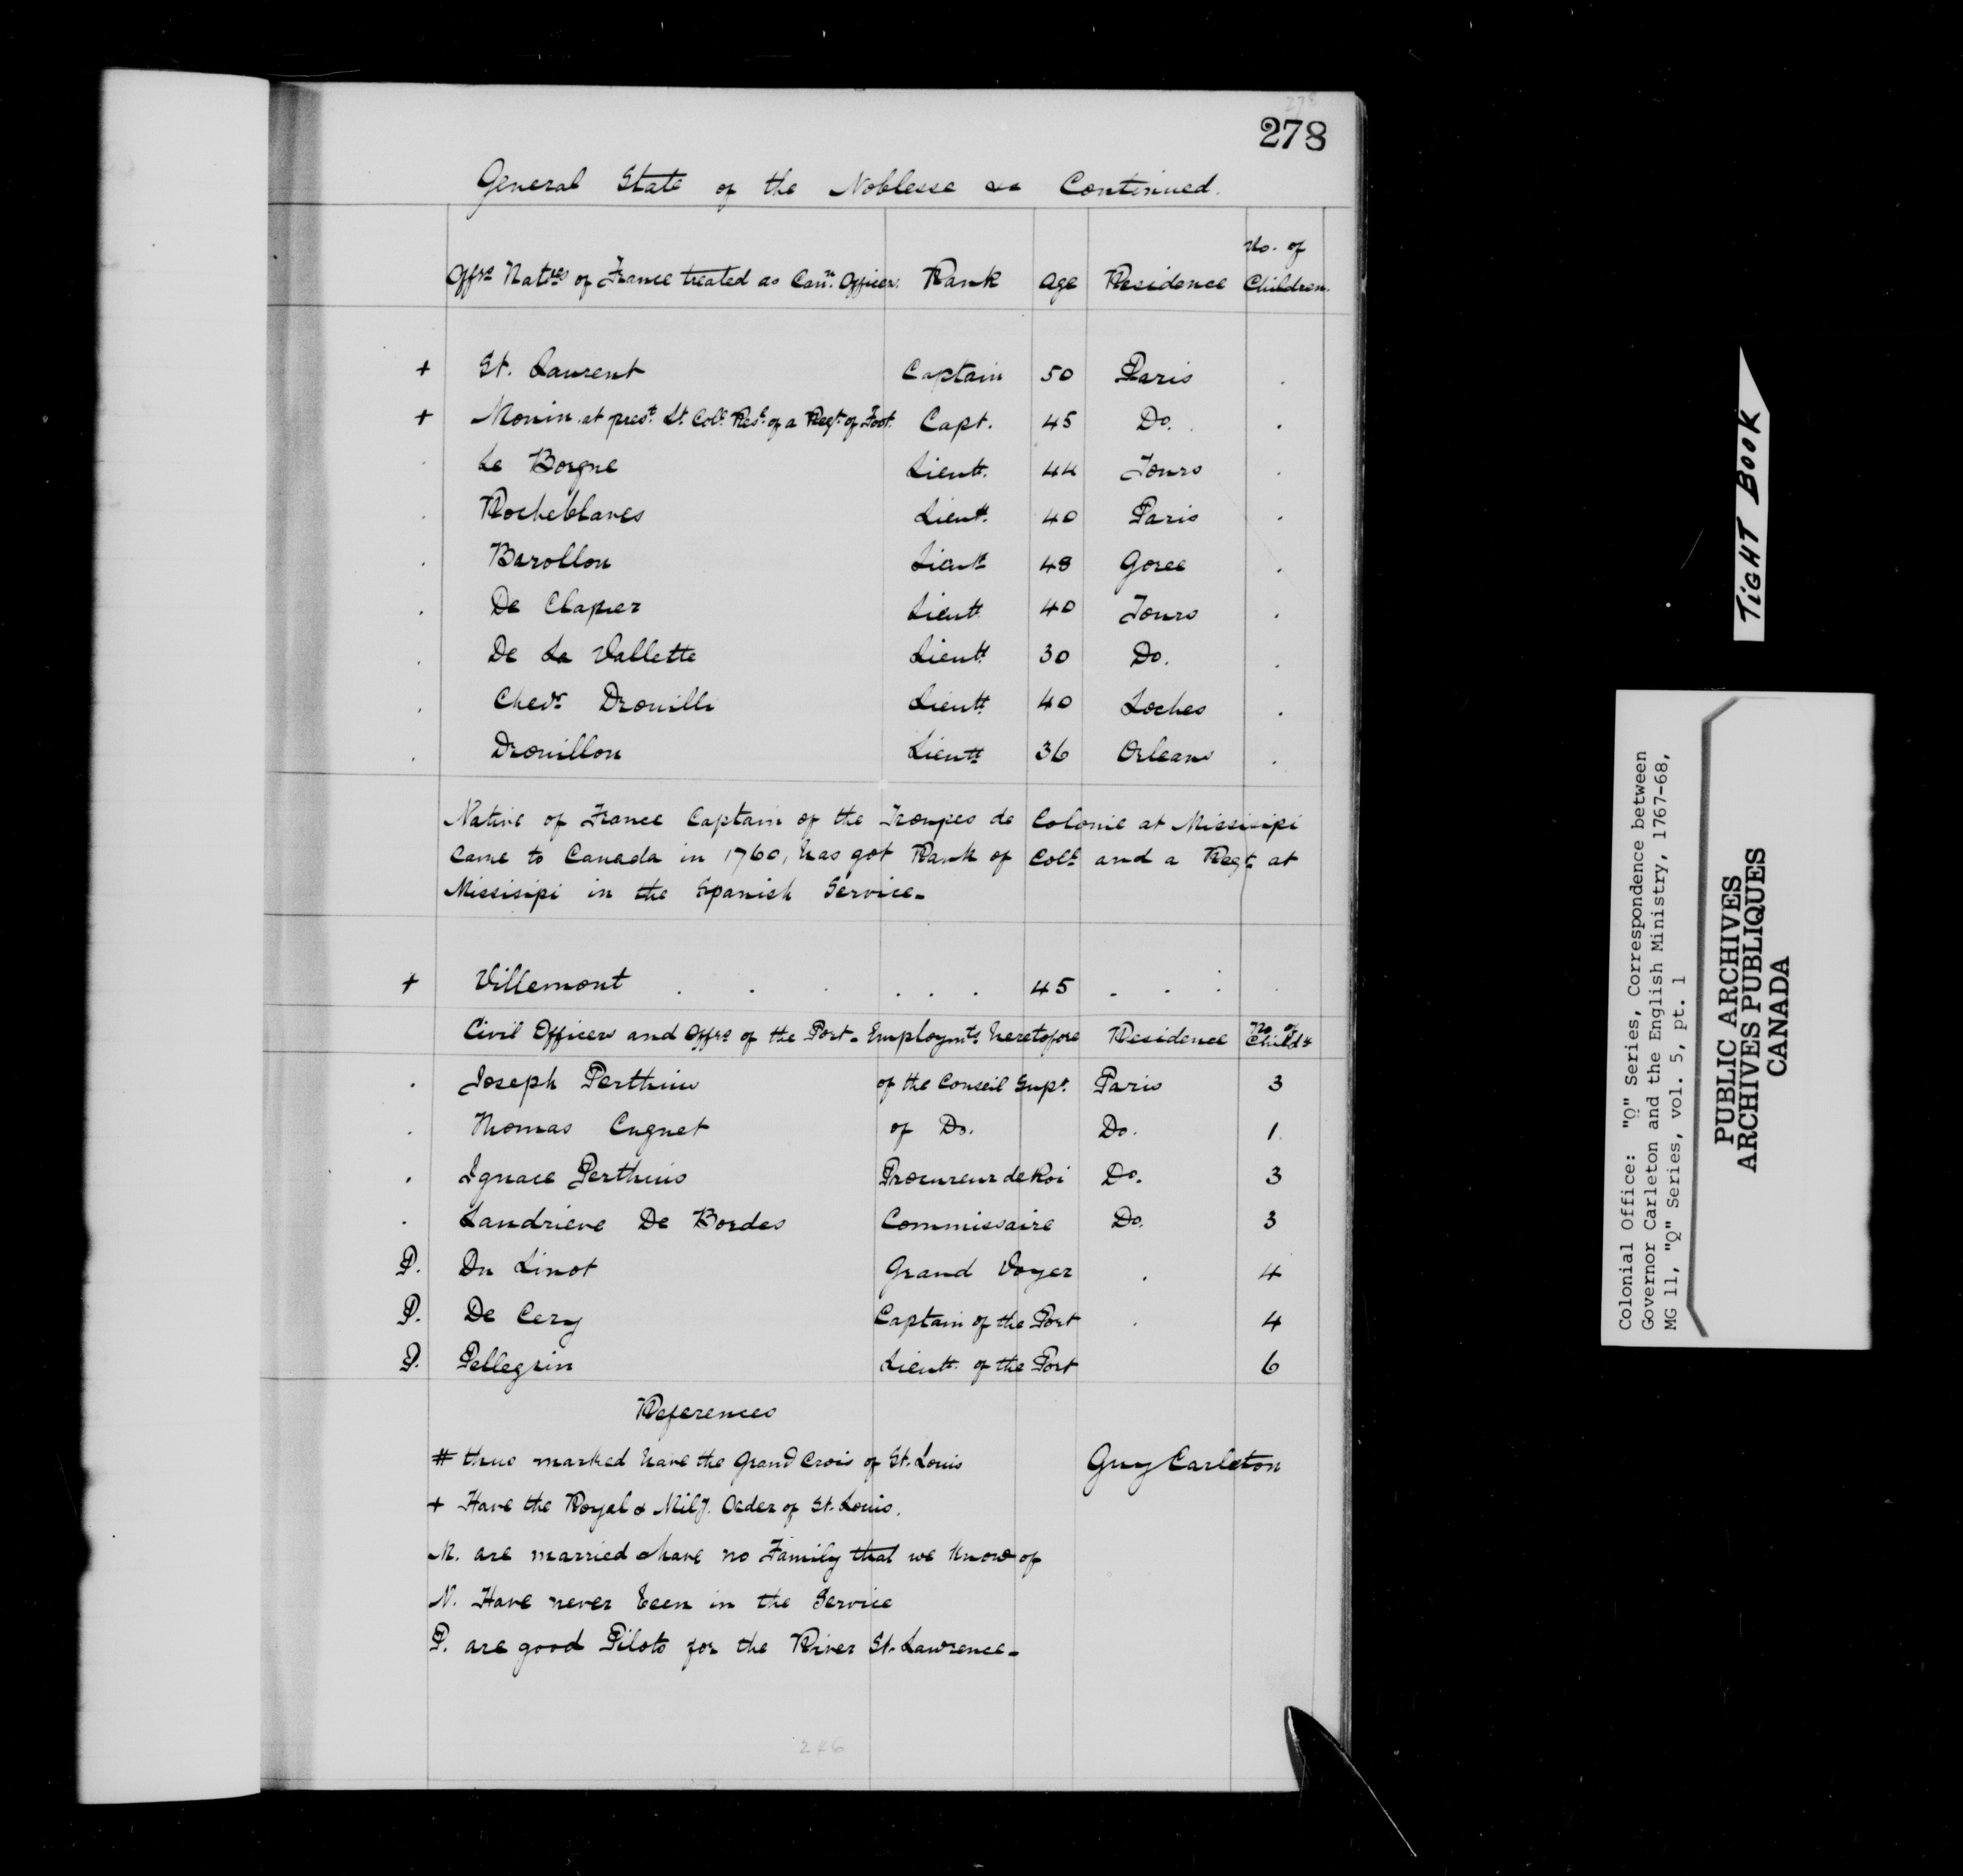 278
278
General State of the Noblesse &c Continued.
Offrs Natves of France treated as Cann. Officers. Rank Age Residence No. of Children.
+ St. Laurent Captain 50 Paris .
+ Monin. at prest. Lt. Coll. of a Regt. of Foot. Capt. 45 Do. .
. Le Borgne Lieutt. 44 Tours .
. Rocheblaves Lieutt. 40 Paris .
. Barollon Lieutt 48 Goree .
. De Clapier Lieutt 40 Tours .
. De La Vallette Lieutt 30 Do. .
. Chevr. Drouilli Lieutt 40 Loches .
. Drouillon Lieutt 36 Orleans .
Native of France Captain of the Troupes de Colonie at Missisipi
Came to Canada in 1760, has got Rank of Coll. and a Regt. at
Missisipi in the Spanish Service.
+ Villemont . . . . . . 45 . . .
Civil Officers and Offrs of the Port. Employmts. heretofore Residence No of Childn
. Joseph Perthius of the Conseil Supr. Paris 3
. Thomas Cugnet of Do. Do. 1.
. Ignace Perthuis Procureur de Roi Do. 3
. Landrieve De Bordes Commissaire Do. 3
P. Du Linot Grand Voyer . 4
P. De Cery Captain of the Port . 4
P. Pellegrin Lieutt. of the Port 6
References
# thus marked have the Grand Crois of St. Louis Guy Carleton
+ Have the Royal & Mily. Order of St. Louis.
M. are married & have no Family that we know of
N. Have never been in the Service
P. are good Pilots for the River St. Lawrence.
246
TIGHT BOOK
Colonial Office: "Q" Series, Correspondence between
Governor Carleton and the English Ministry, 1767-68,
MG 11, "Q" Series, vol. 5, pt. 1
PUBLIC ARCHIVES
ARCHIVES PUBLIQUES
CANADA